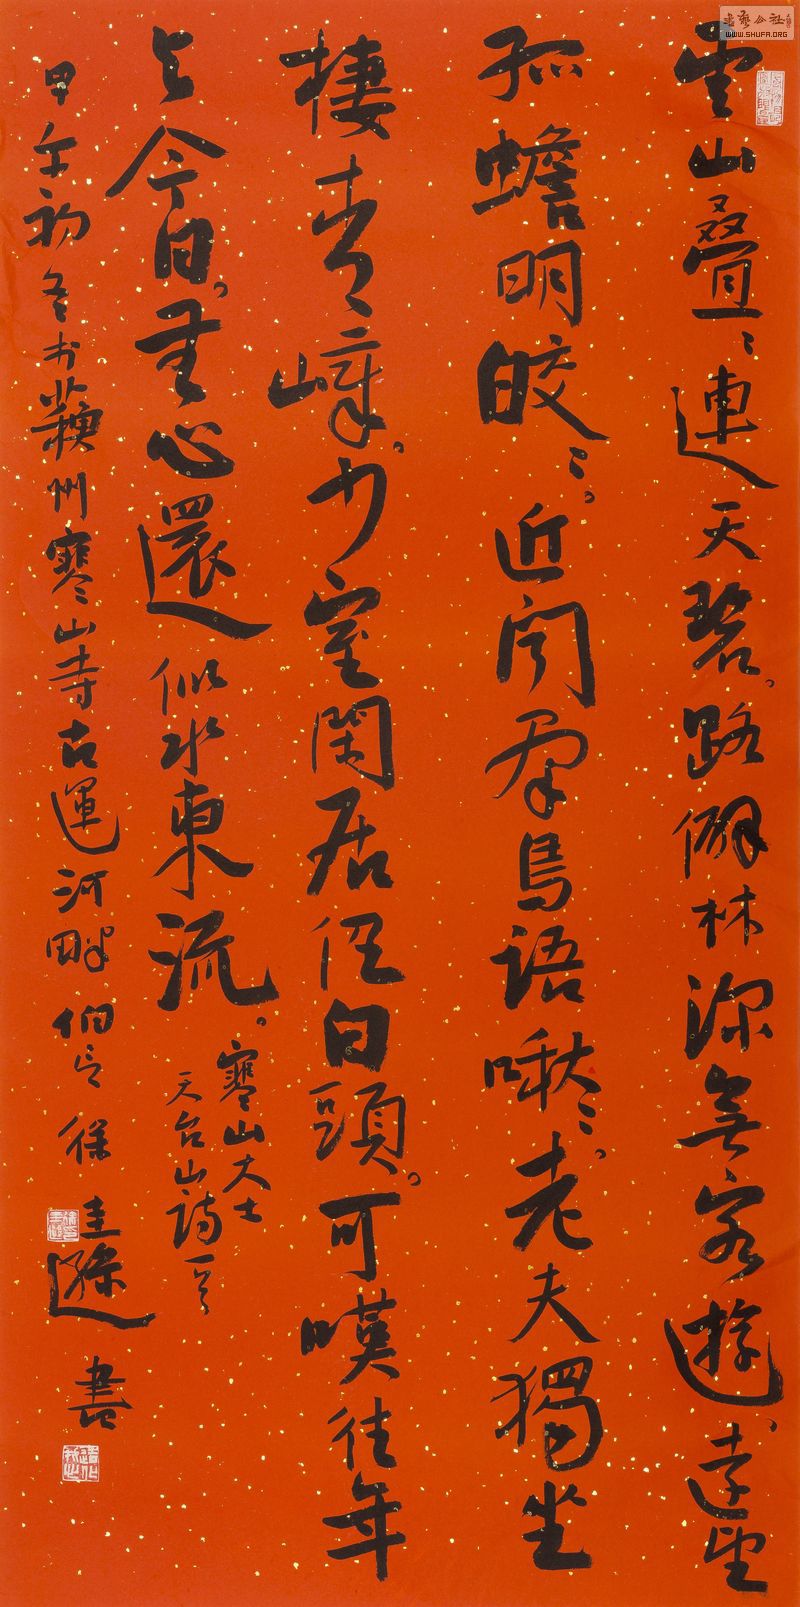 雲山疊〻連天碧。路僻林深無客遊、遠望
孤蟾明皎〻。近聞群鳥語啾〻。老夫獨坐
棲青嶂。少室閑居任白頭。可嘆往年
与今日。無心還似水東流。
寒山大士
天台山詩一首
甲午初冬書於蘇州寒山寺古運河畔伯言徐圭遜書
書藝公社
WWW.SHUFA.ORG